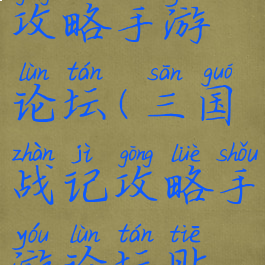 攻略手游
lùn tán sān guó
论坛(三国
zhàn jì gōng lüè shǒu
战记攻略手
yóu lùn tán tiē
游论坛贴